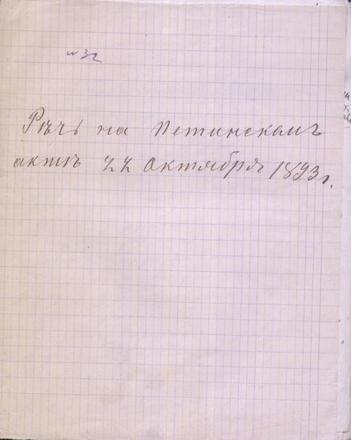 № 32
Рѣчь на Петинскомъ
актѣ 22 Октября 1893 г.